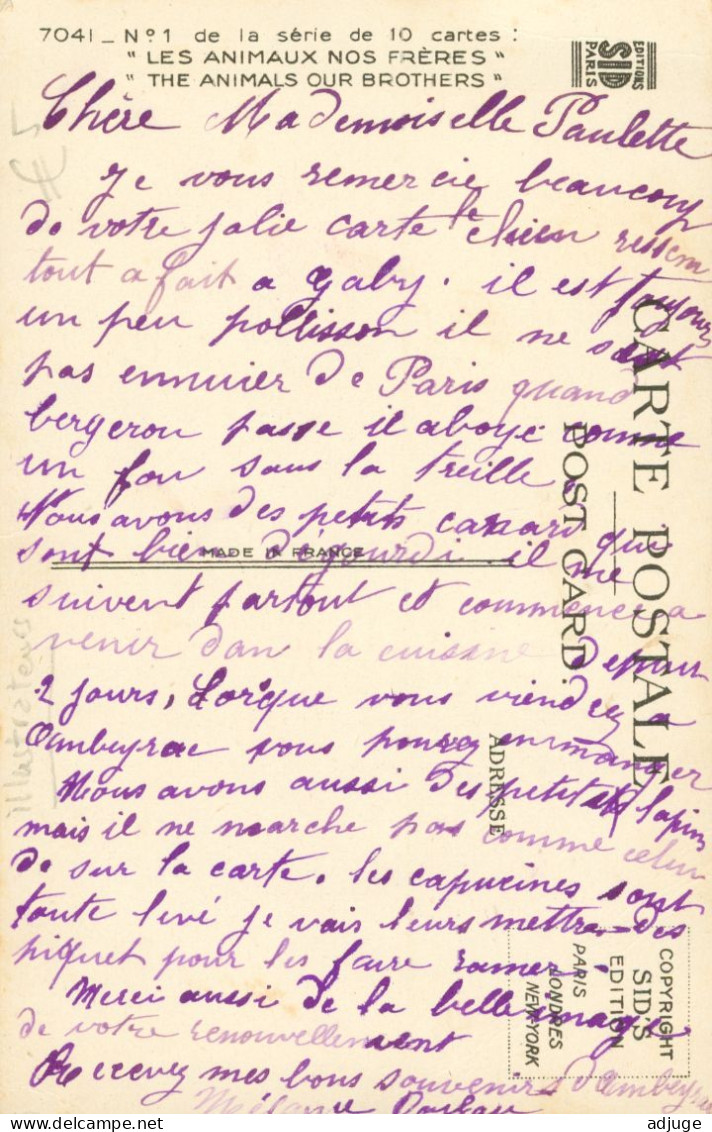 7041 _ Nº1 de la série de 10 cartes :
" LES ANIMAUX NOS FRÈRES "
" THE ANIMALS OUR BROTHERS "
EDITIONS
SID
PARIS
Chère Mademoiselle Paulette
Je vous remercie beaucoup
de votre jolie carte le chien ressem
tout a fait a Gaby. il est toujours
un peu pollisson il ne sait
pas ennuier de Paris quand
bergeron passe il aboye comme
un fou sous la treille
Nous avons des petits canard qui
sont bien dégourdi. il me
suivent partout et commence a
venir dan la cuisine depuis
2 jours, Lorque vous viendrez a
Ambeyrac vous pourez en manger
Nous avons aussi des petit lapin
mais il ne marche pas comme celui
de sur la carte. les capucines sont
toute levé je vais leurs mettre des
piquet pour les faire ramer.
Merci aussi de la belle image
de votre renouvellement
Recevez mes bons souvenirs d'Ambeyrac
CARTE POSTALE
POST CARD.
MADE IN FRANCE
ADRESSE
COPYRIGHT
SID'S
EDITION
PARIS
LONDRES
NEW-YORK
€5
illustrateurs
adjuge
delcampe.net